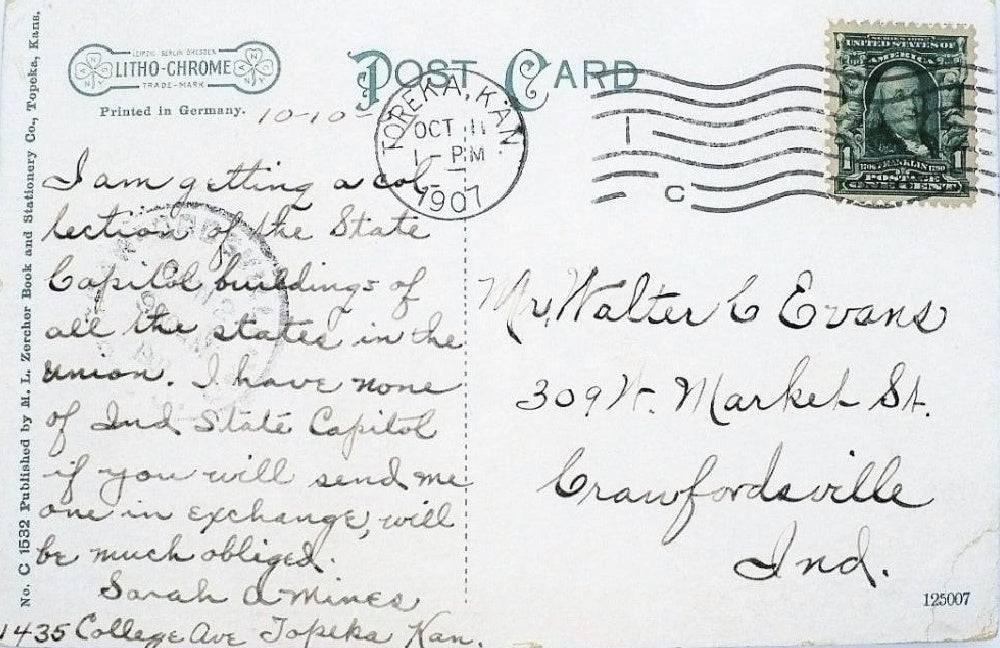 No. C 1532 Published by M. L. Zercher Book and Stationery Co., Topeka, Kans.
LEIPZIG BERLIN DRESDEN
LITHO-CHROME
TRADE-MARK
Printed in Germany.
POST CARD
10-10
TOPEKA, KAN.
OCT 11
1 - PM
1907
1
C
SERIES 1902
UNITED STATES OF
AMERICA
1 FRANKLIN 1
ONE CENT
I am getting a col-
lection of the State
Capitol buildings of
all the states in the
union. I have none
of Ind State Capitol
if you will send me
one in exchange, will
be much obliged.
Sarah A Mines
1435 College Ave Topeka Kan.
Mr, Walter C Evans
309 W. Market St.
Crawfordsville
Ind.
125007